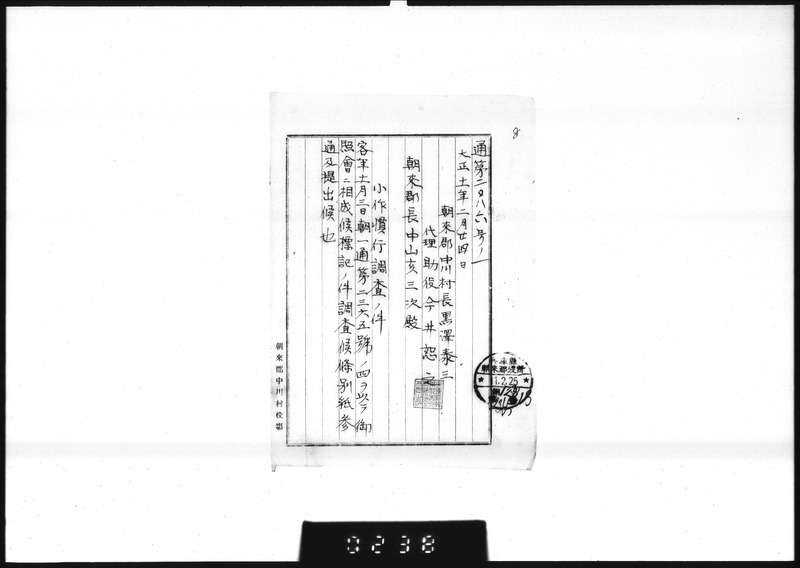 8
通第二〇八六号ノ一
大正十一年二月廿四日
朝來郡中川村長黒澤泰三
代理助役今井恕之
朝來郡長中山亥三次殿
小作慣行調査ノ件
客年十一月三日朝一通第二三六五號ノ四ヲ以テ御
照會ニ相成候標記ノ件調査候條別紙参
通及提出候也
朝來郡中川村役場
兵庫縣
朝來郡役所
11.2.25
0238